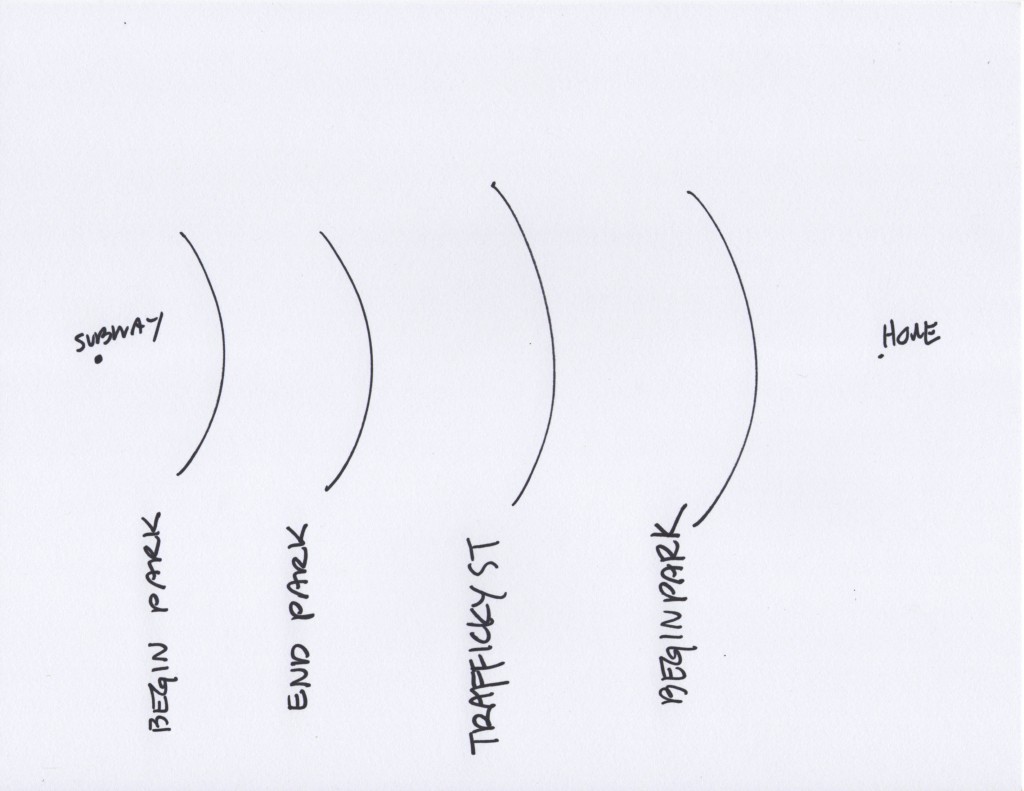 SUBWAY
HOME
BEGIN PARK
END PARK
TRAFFICKY ST
BEGIN PARK